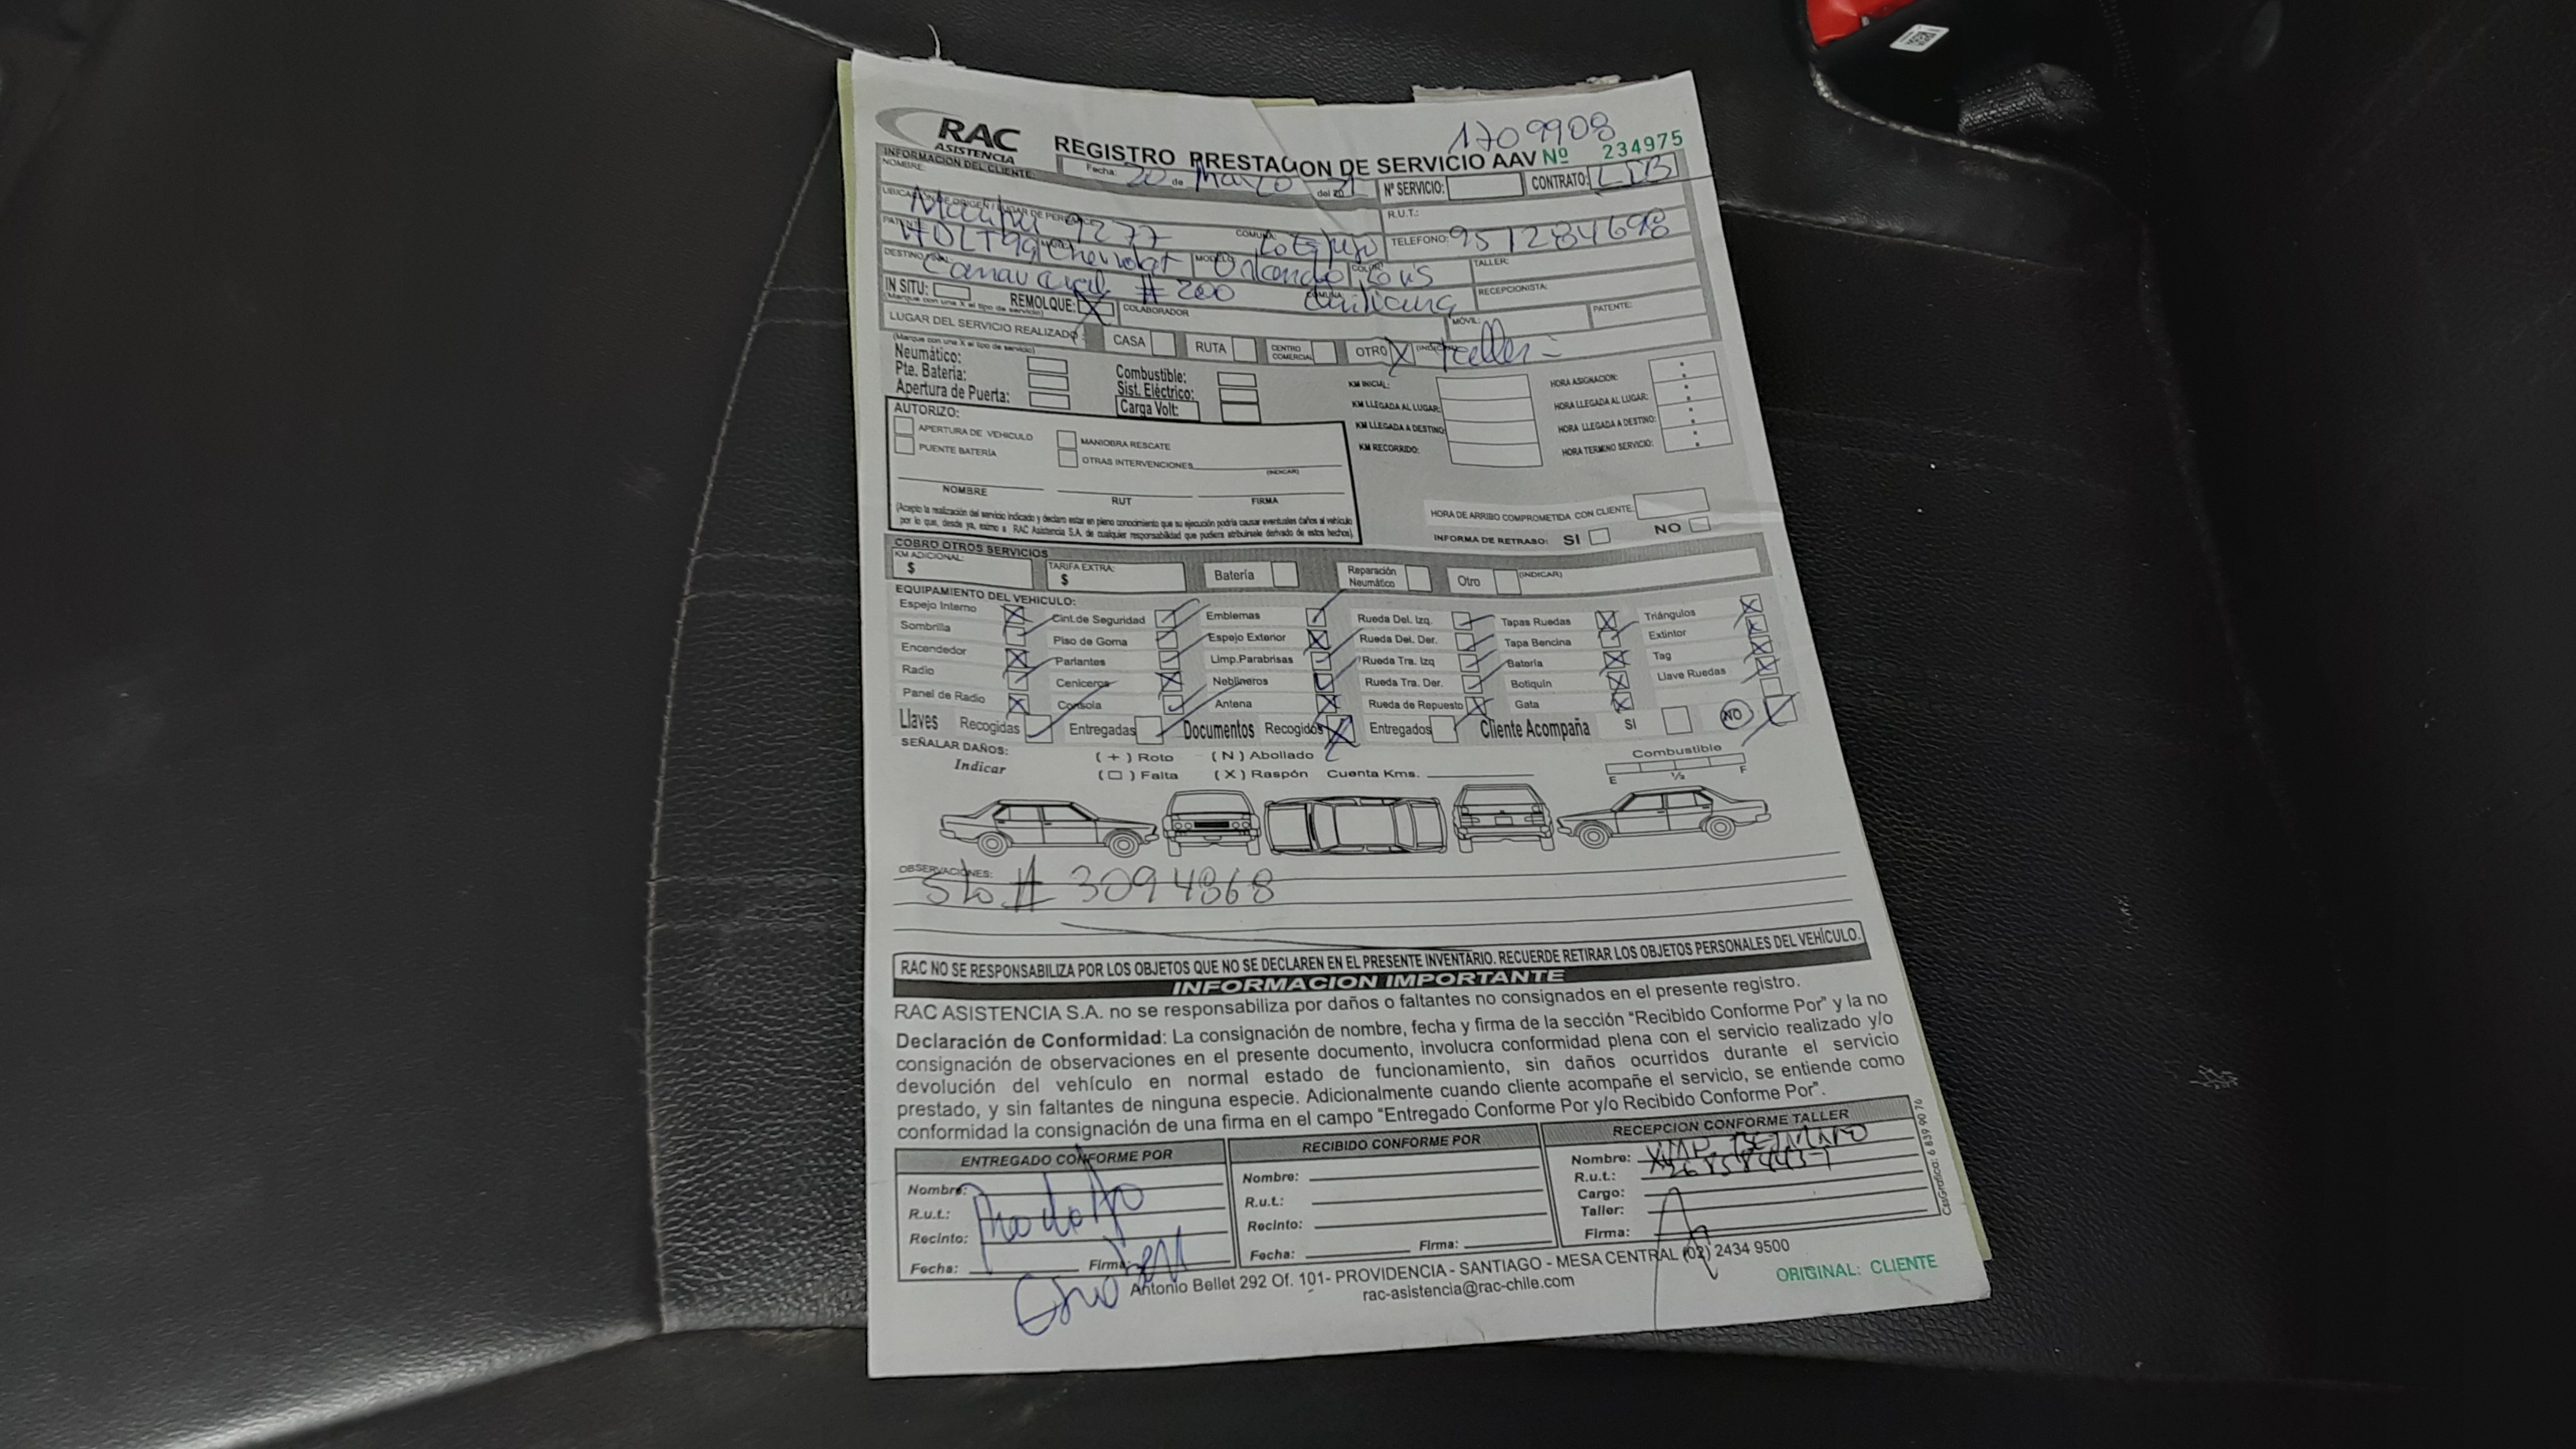 RAC
ASISTENCIA
1709908
REGISTRO PRESTACION DE SERVICIO AAV Nº 234975
INFORMACION DEL CLIENTE:
Fecha: 20 de Mayo del 20 21
Nº SERVICIO:
CONTRATO:
NOMBRE:
R.U.T.:
9277
COMUNA:
TELEFONO: 951284698
Chevrolet
MODELO: Orlando
COLOR:
TALLER:
DESTINO FINAL:
# 200
COMUNA:
RECEPCIONISTA:
IN SITU:
REMOLQUE: X
(Marque con una X el tipo de servicio)
COLABORADOR
MÓVIL:
PATENTE:
LUGAR DEL SERVICIO REALIZADO:
CASA
RUTA
CENTRO COMERCIAL
OTRO X
taller
(Marque con una X el tipo de servicio)
Neumático:
Pte. Batería:
Apertura de Puerta:
Combustible:
Sist. Eléctrico:
Carga Volt:
KM INICIAL:
KM LLEGADA AL LUGAR:
KM LLEGADA A DESTINO:
KM RECORRIDO:
HORA ASIGNACION:
HORA LLEGADA AL LUGAR:
HORA LLEGADA A DESTINO:
HORA TERMINO SERVICIO:
AUTORIZO:
APERTURA DE VEHICULO
PUENTE BATERÍA
MANIOBRA RESCATE
OTRAS INTERVENCIONES
(INDICAR)
NOMBRE
RUT
FIRMA
(Acepto la realización del servicio indicado y declaro estar en pleno conocimiento que su ejecución podría causar eventuales daños al vehículo
por lo que, desde ya, eximo a RAC Asistencia S.A. de cualquier responsabilidad que pudiera atribuirsele derivado de estos hechos).
HORA DE ARRIBO COMPROMETIDA CON CLIENTE:
INFORMA DE RETRASO: SI NO
COBRO OTROS SERVICIOS
KM ADICIONAL:
$
TARIFA EXTRA:
$
Batería
Reparación Neumático
Otro
(INDICAR)
EQUIPAMIENTO DEL VEHICULO:
Espejo Interno
Cint.de Seguridad
Emblemas
Rueda Del. Izq.
Tapas Ruedas
Triángulos
Sombrilla
Piso de Goma
Espejo Exterior
Rueda Del. Der.
Tapa Bencina
Extintor
Encendedor
Parlantes
Limp.Parabrisas
Rueda Tra. Izq
Batería
Tag
Radio
Ceniceros
Neblineros
Rueda Tra. Der.
Botiquin
Llave Ruedas
Panel de Radio
Consola
Antena
Rueda de Repuesto
Gata
Llaves Recogidas Entregadas Documentos Recogidos Entregados Cliente Acompaña SI NO
SEÑALAR DAÑOS:
Indicar
( + ) Roto
( N ) Abollado
( □ ) Falta
( X ) Raspón
Cuenta Kms.
Combustible
E ½ F
OBSERVACIONES:
# 3094868
RAC NO SE RESPONSABILIZA POR LOS OBJETOS QUE NO SE DECLAREN EN EL PRESENTE INVENTARIO. RECUERDE RETIRAR LOS OBJETOS PERSONALES DEL VEHÍCULO.
INFORMACION IMPORTANTE
RAC ASISTENCIA S.A. no se responsabiliza por daños o faltantes no consignados en el presente registro.
Declaración de Conformidad: La consignación de nombre, fecha y firma de la sección "Recibido Conforme Por" y la no
consignación de observaciones en el presente documento, involucra conformidad plena con el servicio realizado y/o
devolución del vehículo en normal estado de funcionamiento, sin daños ocurridos durante el servicio
prestado, y sin faltantes de ninguna especie. Adicionalmente cuando cliente acompañe el servicio, se entiende como
conformidad la consignación de una firma en el campo "Entregado Conforme Por y/o Recibido Conforme Por".
ENTREGADO CONFORME POR
Nombre:
R.u.t.:
Recinto:
Fecha:
Firma:
Rodolfo
RECIBIDO CONFORME POR
Nombre:
R.u.t.:
Recinto:
Fecha:
Firma:
RECEPCION CONFORME TALLER
Nombre:
R.u.t.:
Cargo:
Taller:
Firma:
CasGrafica: 6 839 90 76
Antonio Bellet 292 Of. 101- PROVIDENCIA - SANTIAGO - MESA CENTRAL (02) 2434 9500
rac-asistencia@rac-chile.com
ORIGINAL: CLIENTE